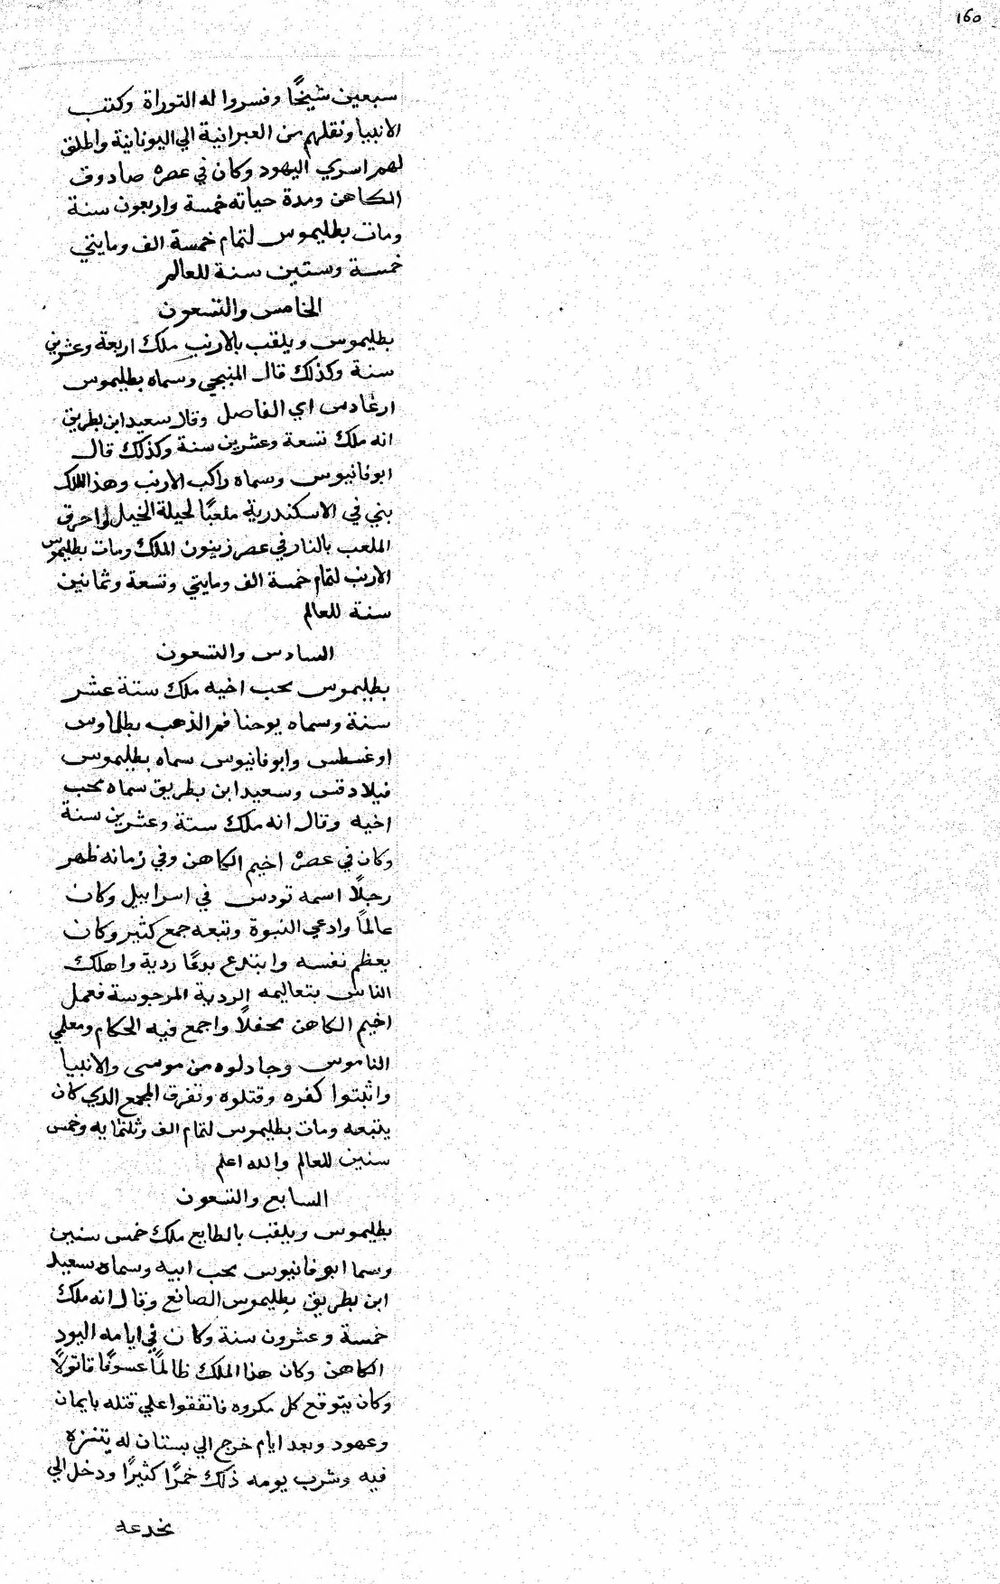 160
سبعين شيخًا وفسروا له التوراة وكتب
الانبيا ونقلهم من العبرانية الي اليونانية واطلق
لهم اسري اليهود وكان في عصره صادوق
الكاهن ومدة حياته خمسة واربعون سنة
ومات بطليموس لتمام خمسة الف ومايتي
خمسة وستين سنة للعالم
الخامس والتسعون
بطليموس ويلقب بالارنب ملك اربعة وعشرين
سنة وكذلك قال المنبجي وسماه بطليموس
ارغادس اي الفاصل وقال سعيد ابن بطريق
انه ملك تسعة وعشرين سنة وكذلك قال
ابوفانيوس وسماه راكب الارنب وهذا الملك
بني في الاسكندرية ملعبًا لحيلة الخيل واحرق
الملعب بالنار في عصر زينون الملك ومات بطليموس
الارنب لتمام خمسة الف ومايتي وتسعة وثمانين
سنة للعالم
السادس والتسعون
بطليموس محب اخيه ملك ستة عشر
سنة وسماه يوحنا فم الذهب بطلماوس
اوغسطس وابوفانيوس سماه بطليموس
فيلادقس وسعيد ابن بطريق سماه محب
اخيه وقال انه ملك ستة وعشرين سنة
وكان في عصره اخيم الكاهن وفي زمانه ظهر
رجلًا اسمه تودس في اسراييل وكان
عالمًا وادعي النبوة وتبعه جمع كثير وكان
يعظم نفسه وابتدع بدعًا ردية واهلك
الناس بتعاليمه الردية المرجوسة فعمل
اخيم الكاهن محفلًا واجمع فيه الحكام ومعلمي
الناموس وجادلوه من موسى والانبيا
واثبتوا كفره وقتلوه وتفرق المجمع الذي كان
يتبعه ومات بطليموس لتمام الف وثلثمايه وخمس
سنين للعالم والله اعلم
السابع والتسعون
بطليموس ويلقب بالطايع ملك خمس سنين
وسما ابوفانيوس محب ابيه وسماه سعيد
ابن بطريق بطليموس الصانع وقال انه ملك
خمسة وعشرون سنة وكان في ايامه اليود
الكاهن وكان هذا الملك ظالمًا عسوفًا قاتولًا
وكان يتوقع كل مكروه فاتفقوا علي قتله بايمان
وعهود وبعد ايام خرج الي بستان له يتنزه
فيه وشرب يومه ذلك خمرًا كثيرًا ودخل الي
مخدعه